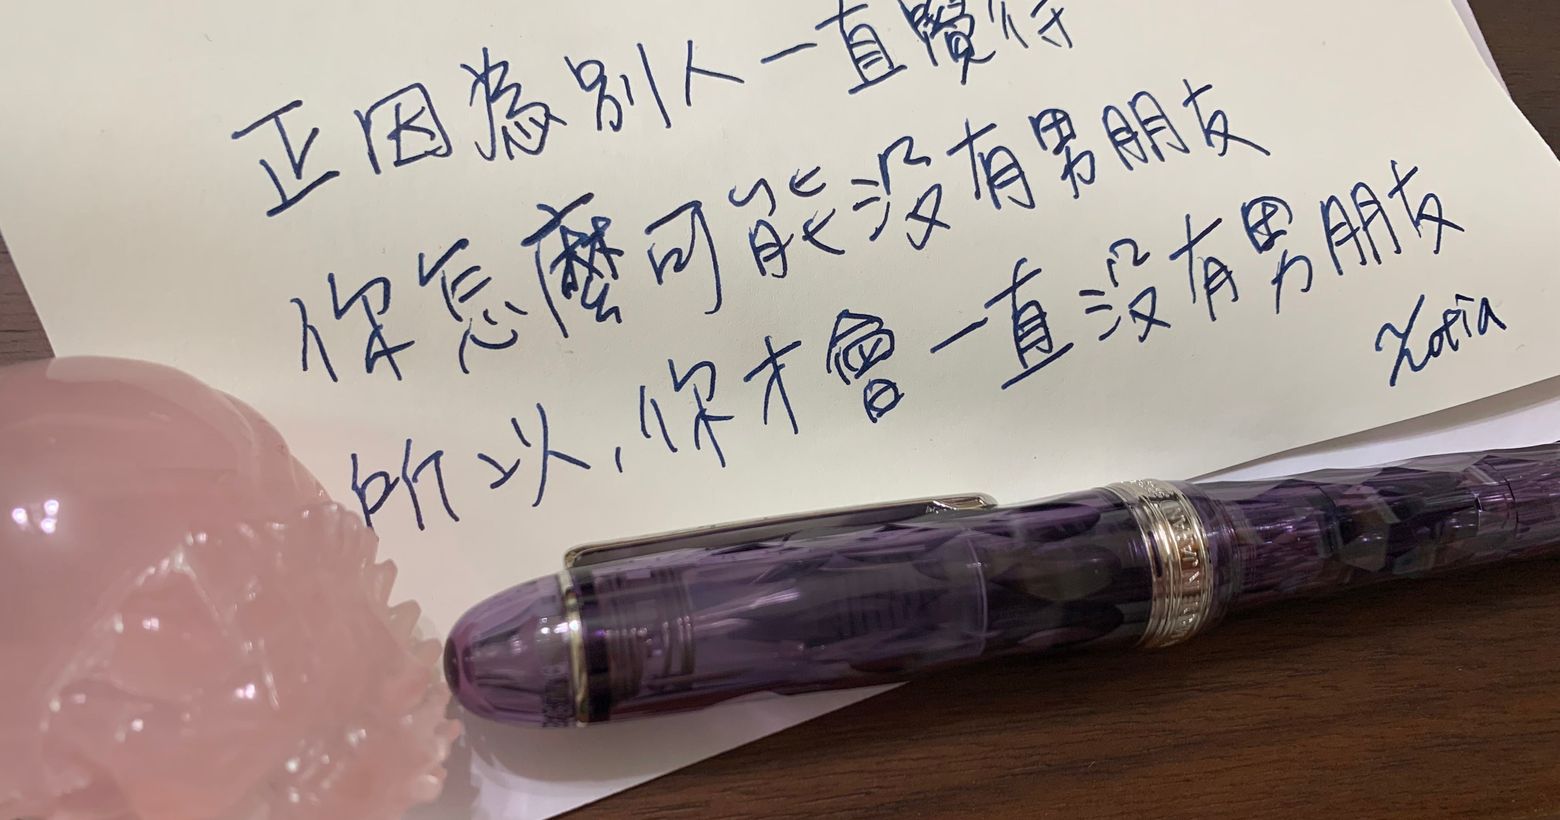 正因為別人一直覺得
你怎麼可能沒有男朋友
所以,你才會一直沒有男朋友